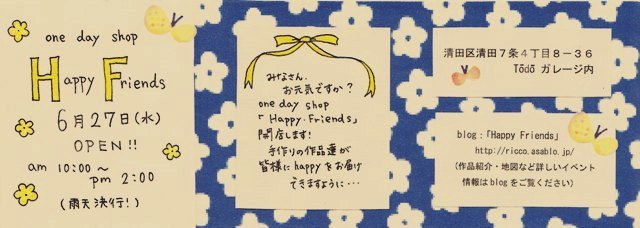 one day shop
Happy Friends
6月27日(水)
OPEN!!
am 10:00〜
pm 2:00
(雨天決行!)
みなさん、
お元気ですか?
one day shop
「Happy Friends」
開店します!
手作りの作品達が
皆様にhappyをお届け
できますように・・・
清田区清田7条4丁目8−36
Tōdō ガレージ内
blog:「Happy Friends」
http://ricco.asablo.jp/
(作品紹介・地図など詳しいイベント
情報はblogをご覧ください)